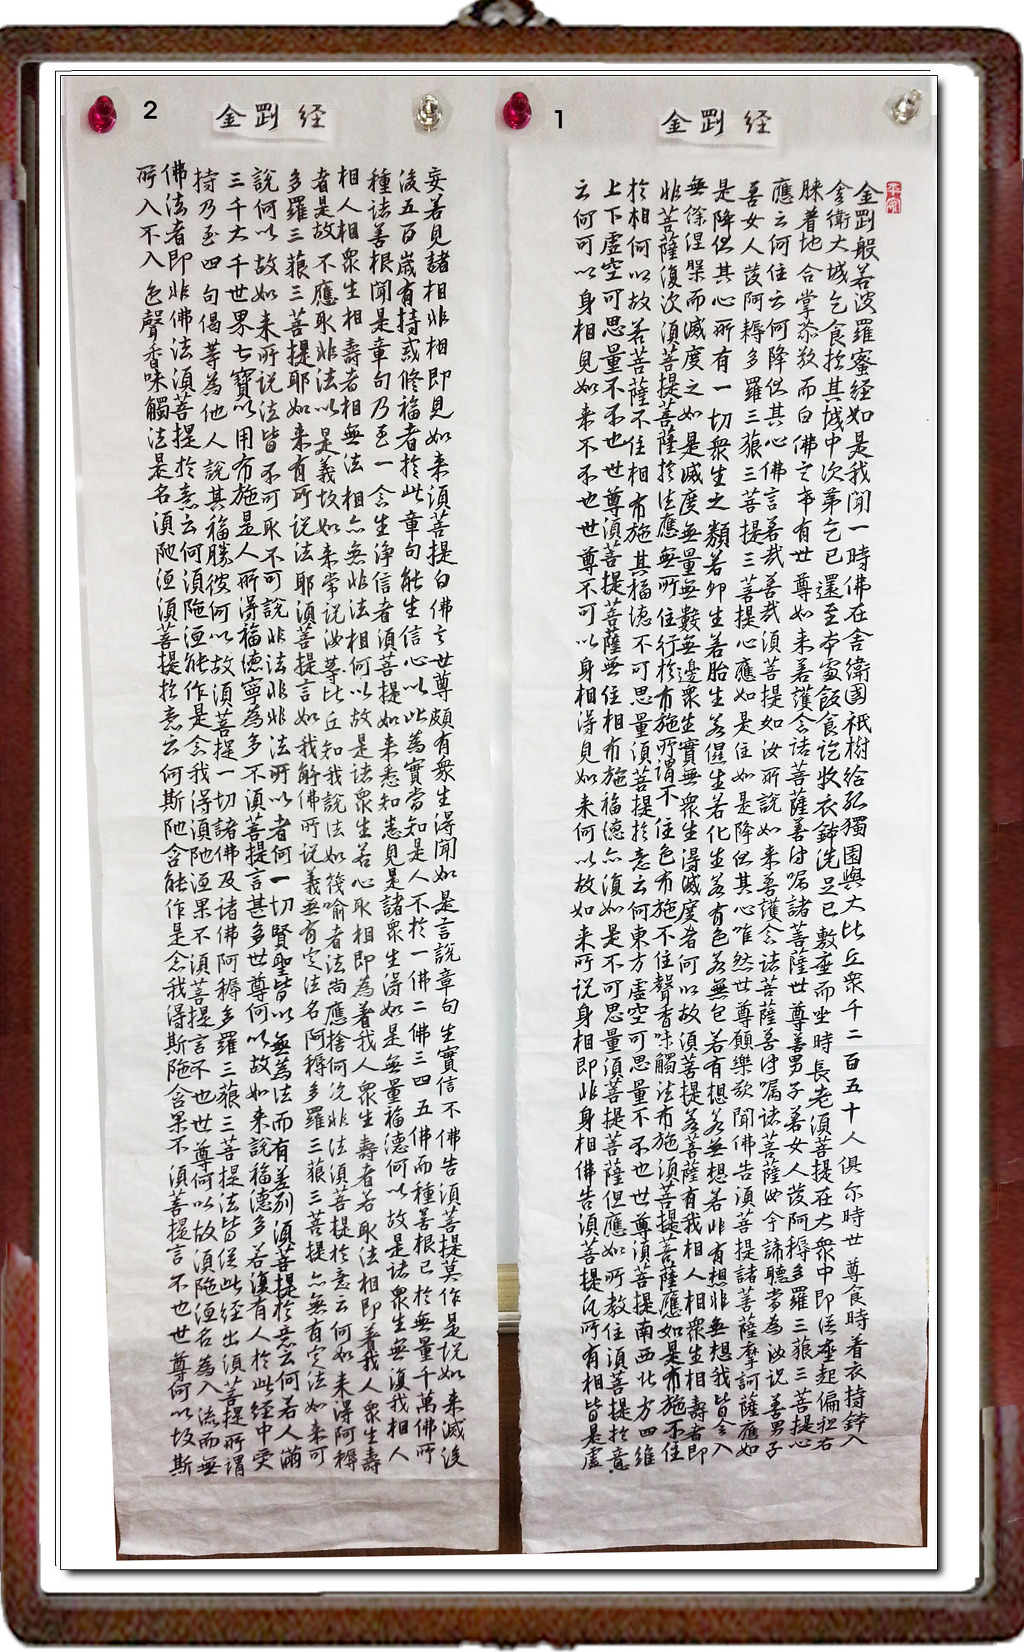 1
金剛经
金剛般若波羅蜜经如是我聞一時佛在舍衛國祇樹给孤獨園與大比丘衆千二百五十人俱尔時世尊食時着衣持鉢入
舍衛大城乞食於其城中次第乞已還至本處飯食訖收衣鉢洗足已敷座而坐時長老須菩提在大衆中即從座起偏袒右
膝着地合掌恭敬而白佛言希有世尊如来善護念诸菩薩善付嘱諸菩薩世尊善男子善女人發阿耨多羅三藐三菩提心
應云何住云何降伏其心佛言善哉善哉須菩提如汝所說如来善護念诸菩薩善付嘱诸菩薩汝今諦聽當為汝说善男子
善女人發阿耨多羅三藐三菩提三菩提心應如是住如是降伏其心唯然世尊願樂欲聞佛告須菩提諸菩薩摩訶薩應如
是降伏其心所有一切衆生之類若卵生若胎生若濕生若化生若有色若無色若有想若無想若非有想非無想我皆令入
無餘涅槃而滅度之如是滅度無量無數無邊衆生實無衆生得滅度者何以故須菩提若菩薩有我相人相衆生相壽者即
非菩薩復次須菩提菩薩於法應無所住行於布施所謂不住色布施不住聲香味觸法布施須菩提菩薩應如是布施不住
於相何以故若菩薩不住相布施其福德不可思量須菩提於意云何東方虚空可思量不不也世尊須菩提南西北方四维
上下虚空可思量不不也世世尊須菩提菩薩無住相布施福德亦復如是不可思量須菩提菩薩但應如所教住須菩提於意
云何可以身相見如来不不也世尊不可以身相得見如来何以故如来所说身相即非身相佛告須菩提凡所有相皆是虚
2
金剛经
妄若見諸相非相即見如来須菩提白佛言世尊頗有衆生得聞如是言說章句生實信不佛告須菩提莫作是说如来滅後
後五百歲有持戒修福者於此章句能生信心以此為實當知是人不於一佛二佛三四五佛而種善根已於無量千萬佛所
種诸善根聞是章句乃至一念生淨信者須菩提如来悉知悉見是諸衆生得如是無量福德何以故是诸衆生無復我相人
相人相衆生相壽者相無法相亦無非法相何以故是诸衆生若心取相即為着我人衆生壽者若取法相即着我人衆生壽
者是故不應取非法以是義故如来常说汝等比丘知我說法如筏喻者法尚應捨何况非法須菩提於意云何如来得阿耨
多羅三藐三菩提耶如来有所說法耶須菩提言如我解佛所说義無有定法名阿耨多羅三藐三菩提亦無有定法如来可
說何以故如来所说法皆不可取不可說非法非非法所以者何一切賢聖皆以無為法而有差别須菩提於意云何若人滿
三千大千世界七寶以用布施是人所得福德寧為多不須菩提言甚多世尊何以故如来說福德多若復有人於此经中受
持乃至四句偈等為他人說其福勝彼何以故須菩提一切諸佛及诸佛阿耨多羅三藐三菩提法皆從此经出須菩提所谓
佛法者即非佛法須菩提於意云何須陁洹能作是念我得須陁洹果不須菩提言不也世尊何以故須陁洹名為入流而無
所入不入色聲香味觸法是名須陁洹須菩提於意云何斯陁含能作是念我得斯陁含果不須菩提言不也世尊何以故斯